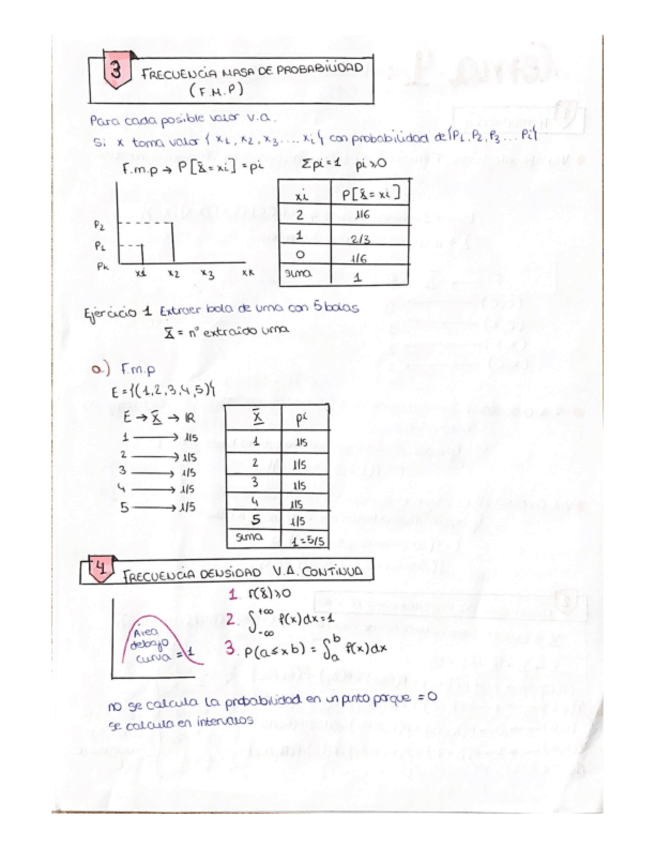 3 FRECUENCIA MASA DE PROBABILIDAD
(F.M.P)
Para cada posible valor v.a.
Si x toma valor { x1, x2, x3 ... xi } con probabilidad de {P1, P2, P3 ... Pi}
F.m.p → P[X = xi] = pi Σpi=1 pi≥0
P2
P1
Pk x1 x2 x3 xk
xi P[X = xi]
2 1/6
1 2/3
0 1/6
suma 1
Ejercicio 1 Extraer bola de urna con 5 bolas
X = nº extraído urna
a) F.m.p
E = {(1,2,3,4,5)}
E → X → IR
1 → 1/5
2 → 1/5
3 → 1/5
4 → 1/5
5 → 1/5
X pi
1 1/5
2 1/5
3 1/5
4 1/5
5 1/5
suma 1=5/5
4 FRECUENCIA DENSIDAD V.A. CONTINUA
Área
debajo
curva = 1
1. f(x)≥0
2. ∫-∞+∞ f(x)dx=1
3. P(a≤xb) = ∫ab f(x)dx
no se calcula la probabilidad en un punto porque = 0
se calcula en intervalos